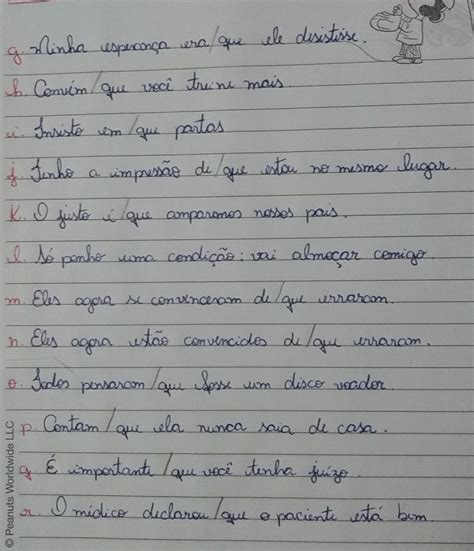 g. Minha esperança era/que ele desistisse.
h. Convém/que você treine mais.
i. Insisto em/que partas
j. Tenho a impressão de/que estou no mesmo lugar.
K. O justo é/que amparemos nossos pais.
l. Só ponho uma condição: vai almoçar comigo.
m. Eles agora se convenceram de/que erraram.
n. Eles agora estão convencidos de/que erraram.
o. Todos pensaram/que fosse um disco voador.
p. Contam/que ela nunca saia de casa.
q. É importante/que você tenha juízo.
r. O médico declarou/que o paciente está bem.
© Peanuts Worldwide LLC